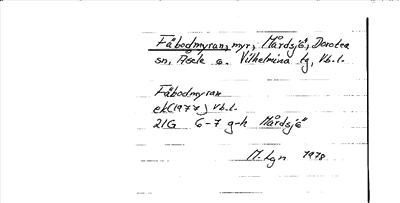 Fäbodmyran, myr, Mårdsjö, Dorotea
sn, Åsele o. Vilhelmina tg, Vb.l.
Fäbodmyran
ek(1977) Vb.l.
21G 6-7 g-h Mårdsjö
M. Lgn 1978